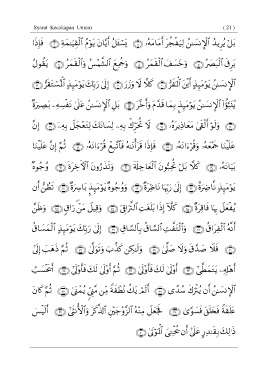 Syarat Kecakapan Umum ( 21 )
بَلْ يُرِيدُ ٱلْإِنسَٰنُ لِيَفْجُرَ أَمَامَهُۥ ۝ يَسْـَٔلُ أَيَّانَ يَوْمُ ٱلْقِيَٰمَةِ ۝ فَإِذَا
بَرِقَ ٱلْبَصَرُ ۝ وَخَسَفَ ٱلْقَمَرُ ۝ وَجُمِعَ ٱلشَّمْسُ وَٱلْقَمَرُ ۝ يَقُولُ
ٱلْإِنسَٰنُ يَوْمَئِذٍ أَيْنَ ٱلْمَفَرُّ ۝ كَلَّا لَا وَزَرَ ۝ إِلَىٰ رَبِّكَ يَوْمَئِذٍ ٱلْمُسْتَقَرُّ ۝
يُنَبَّؤُا۟ ٱلْإِنسَٰنُ يَوْمَئِذٍۭ بِمَا قَدَّمَ وَأَخَّرَ ۝ بَلِ ٱلْإِنسَٰنُ عَلَىٰ نَفْسِهِۦ بَصِيرَةٌ
۝ وَلَوْ أَلْقَىٰ مَعَاذِيرَهُۥ ۝ لَا تُحَرِّكْ بِهِۦ لِسَانَكَ لِتَعْجَلَ بِهِۦٓ ۝ إِنَّ
عَلَيْنَا جَمْعَهُۥ وَقُرْءَانَهُۥ ۝ فَإِذَا قَرَأْنَٰهُ فَٱتَّبِعْ قُرْءَانَهُۥ ۝ ثُمَّ إِنَّ عَلَيْنَا
بَيَانَهُۥ ۝ كَلَّا بَلْ تُحِبُّونَ ٱلْعَاجِلَةَ ۝ وَتَذَرُونَ ٱلْءَاخِرَةَ ۝ وُجُوهٌ
يَوْمَئِذٍ نَّاضِرَةٌ ۝ إِلَىٰ رَبِّهَا نَاظِرَةٌ ۝ وَوُجُوهٌ يَوْمَئِذٍۭ بَاسِرَةٌ ۝ تَظُنُّ أَن
يُفْعَلَ بِهَا فَاقِرَةٌ ۝ كَلَّآ إِذَا بَلَغَتِ ٱلتَّرَاقِىَ ۝ وَقِيلَ مَنْ ۜ رَاقٍ ۝ وَظَنَّ
أَنَّهُ ٱلْفِرَاقُ ۝ وَٱلْتَفَّتِ ٱلسَّاقُ بِٱلسَّاقِ ۝ إِلَىٰ رَبِّكَ يَوْمَئِذٍ ٱلْمَسَاقُ
۝ فَلَا صَدَّقَ وَلَا صَلَّىٰ ۝ وَلَٰكِن كَذَّبَ وَتَوَلَّىٰ ۝ ثُمَّ ذَهَبَ إِلَىٰٓ
أَهْلِهِۦ يَتَمَطَّىٰٓ ۝ أَوْلَىٰ لَكَ فَأَوْلَىٰ ۝ ثُمَّ أَوْلَىٰ لَكَ فَأَوْلَىٰٓ ۝ أَيَحْسَبُ
ٱلْإِنسَٰنُ أَن يُتْرَكَ سُدًى ۝ أَلَمْ يَكُ نُطْفَةً مِّن مَّنِىٍّ يُمْنَىٰ ۝ ثُمَّ كَانَ
عَلَقَةً فَخَلَقَ فَسَوَّىٰ ۝ فَجَعَلَ مِنْهُ ٱلزَّوْجَيْنِ ٱلذَّكَرَ وَٱلْأُنثَىٰٓ ۝ أَلَيْسَ
ذَٰلِكَ بِقَٰدِرٍ عَلَىٰٓ أَن يُحْـِۧىَ ٱلْمَوْتَىٰ ۝